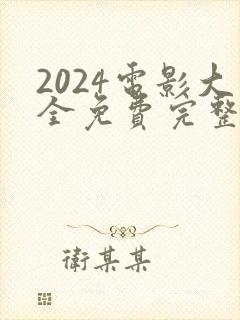 2024電影大
全免費完整
衛某某